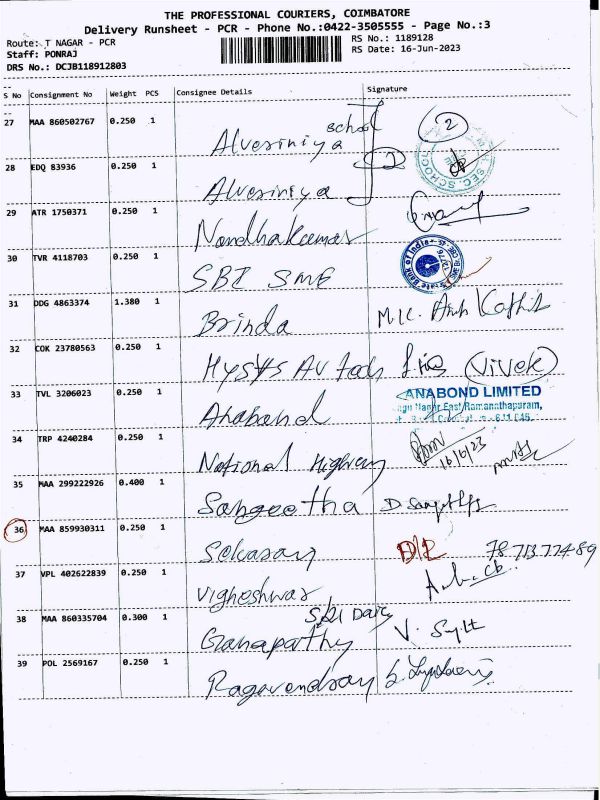 THE PROFESSIONAL COURIERS, COIMBATORE
Delivery Runsheet - PCR - Phone No.:0422-3505555 - Page No.:3
Route: T NAGAR - PCR
RS No.: 1189128
Staff: PONRAJ
RS Date: 16-Jun-2023
DRS No.: DCJB118912803
S No Consignment No Weight PCS Consignee Details Signature
27 MAA 860502767 0.250 1
school
Alvesriniya
2
28 EDQ 83936 0.250 1
Alvesriniya
SEC. SCHOOL
29 ATR 1750371 0.250 1
Nandhakumar
30 TVR 4118703 0.250 1
SBI SME
State Bank of India
31 DDG 4863374 1.380 1
Brinda M.K.
32 COK 23780563 0.250 1
(Vivek)
33 TVL 3206023 0.250 1
Anabond
ANABOND LIMITED
34 TRP 4240284 0.250 1
National Highway
16/6/23
35 MAA 299222926 0.400 1
Sangeetha
36 MAA 859930311 0.250 1
Selvaraj
37 VPL 402622839 0.250 1
Vigheshwar
38 MAA 860335704 0.300 1
Ganapathy
39 POL 2569167 0.250 1
Ragavendray